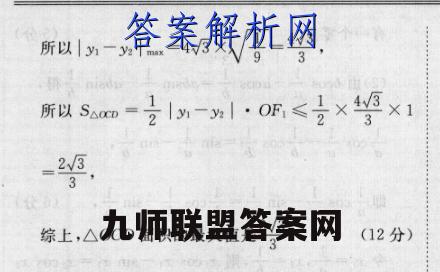 答案解析网
所以|y₁-y₂|max=4√3×√ 9 = √3/3,
所以 S△OCD=1/2|y₁-y₂|·OF₁≤1/2×4√3/3×1
=2√3/3,
九师联盟答案网
综上,△OC 3 (12分)